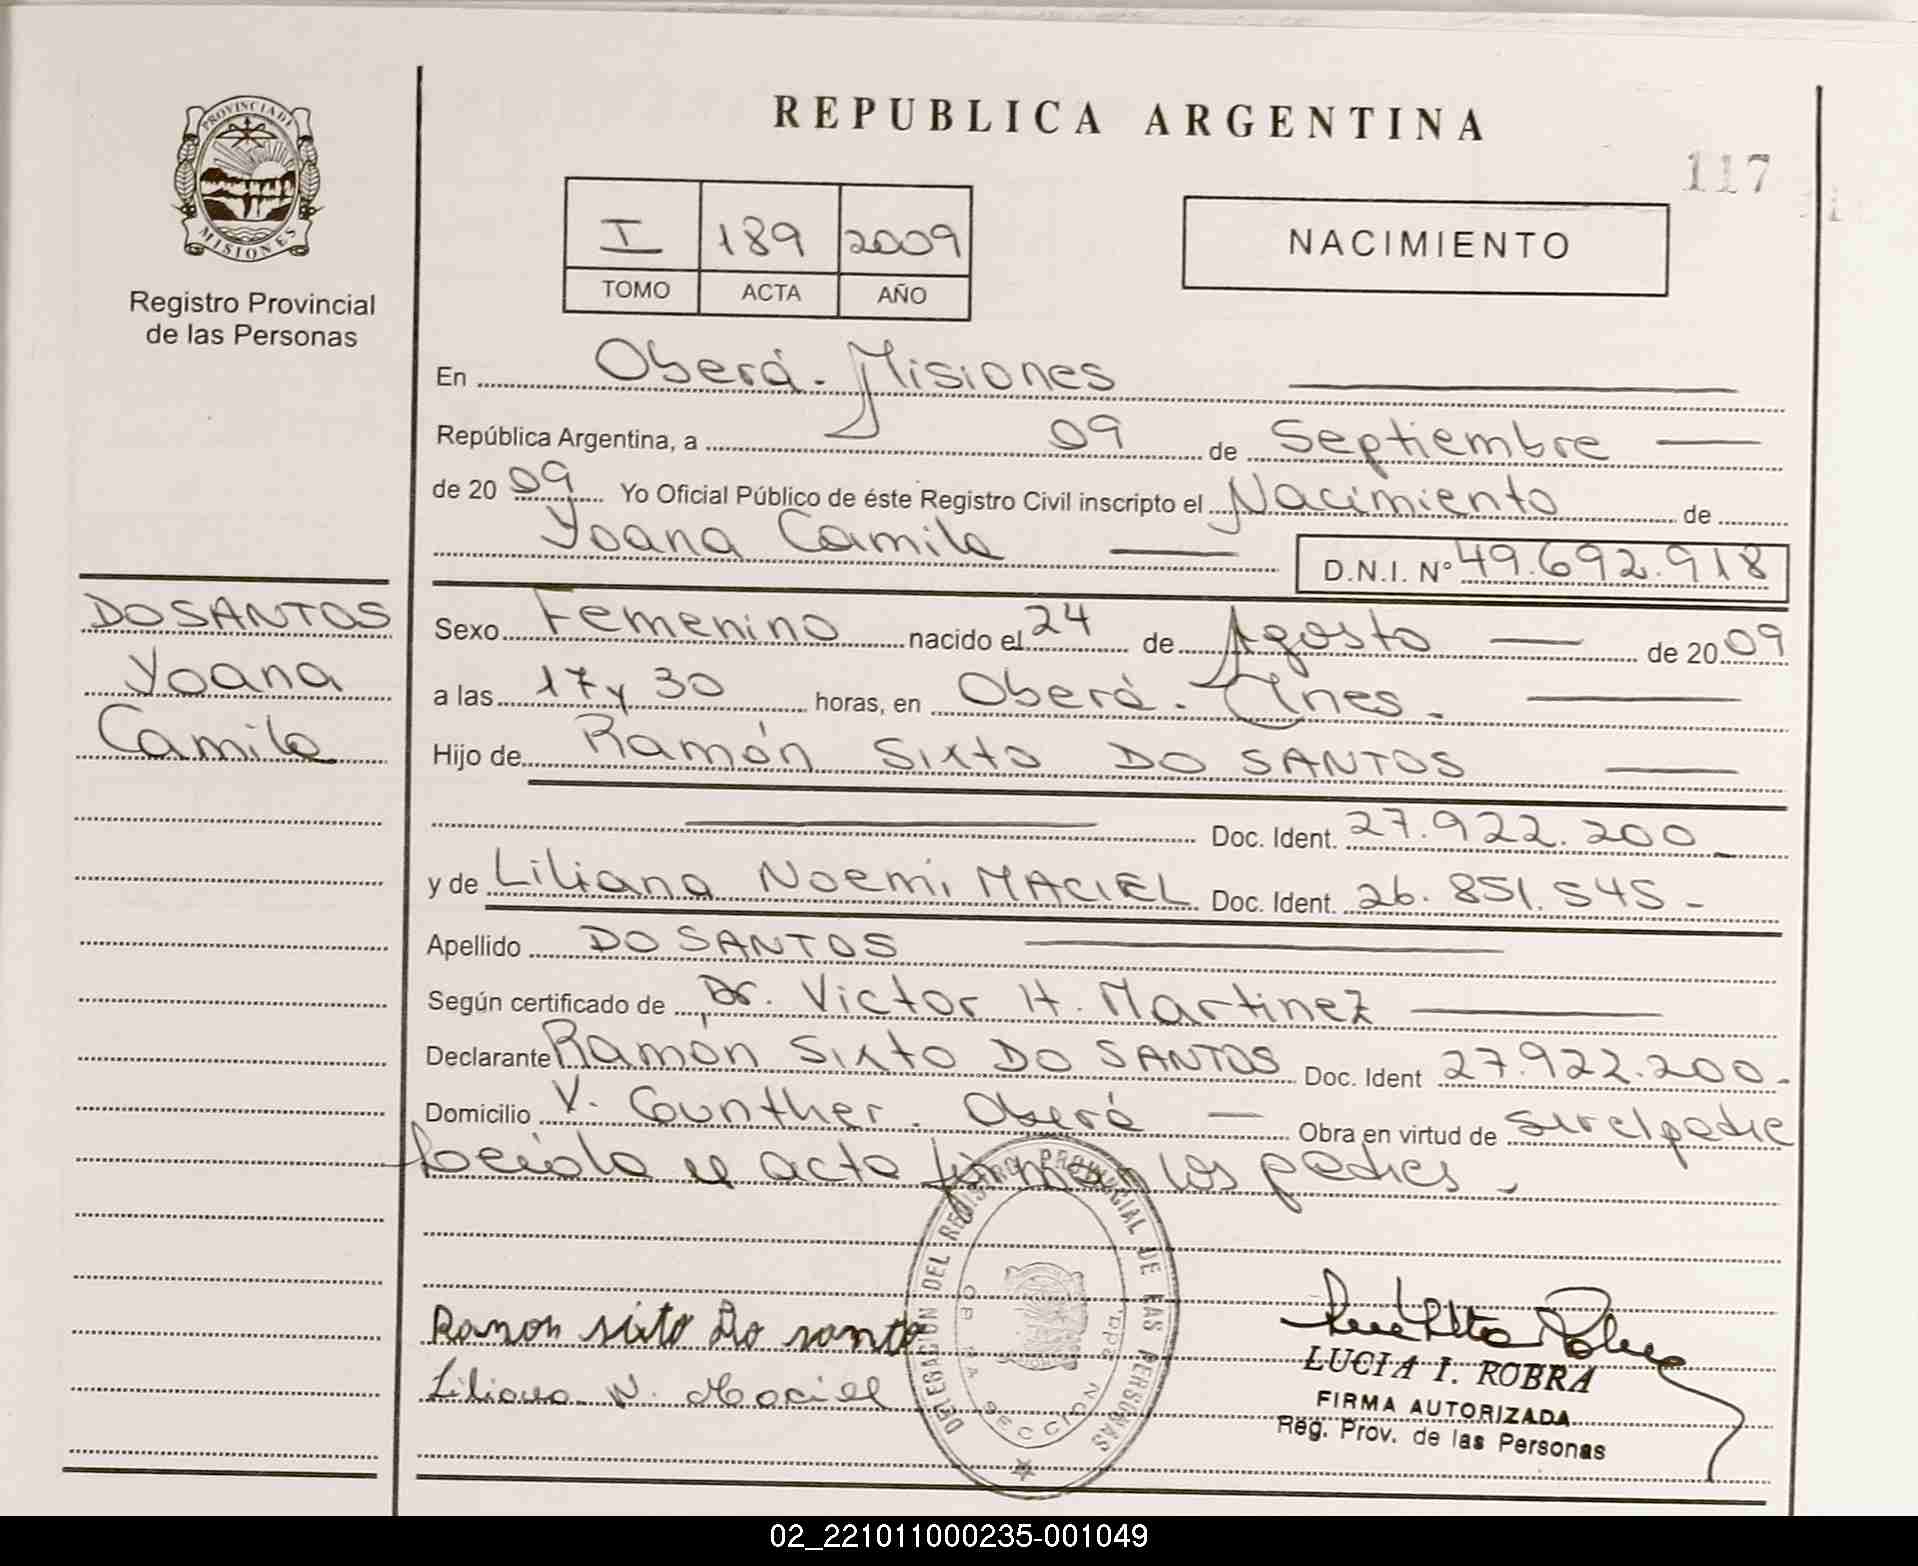 PROVINCIA DE
MISIONES
Registro Provincial
de las Personas
REPUBLICA ARGENTINA
117
I 189 2009
TOMO ACTA AÑO
NACIMIENTO
En Oberá - Misiones
República Argentina, a 09 de Septiembre
de 20 09 Yo Oficial Público de éste Registro Civil inscripto el Nacimiento de
Yoana Camila D.N.I. Nº 49.692.918
DO SANTOS
Yoana
Camila
Sexo Femenino nacido el 24 de Agosto de 20 09
a las 17 y 30 horas, en Oberá - Mnes.
Hijo de Ramón Sixto DO SANTOS
Doc. Ident. 27.922.200
y de Liliana Noemi MACIEL Doc. Ident. 26.851.545 -
Apellido DO SANTOS
Según certificado de Dr. Victor H. Martinez
Declarante Ramón Sixto DO SANTOS Doc. Ident 27.922.200 -
Domicilio V. Gunther. Oberá Obra en virtud de ser el padre
acta firman los padres -
Ramon sixto Do santo
Liliana N. Maciel
DELEGACION DEL REGISTRO PROVINCIAL DE LAS PERSONAS
SECCION
LUCIA I. ROBRA
FIRMA AUTORIZADA
Reg. Prov. de las Personas
02_221011000235-001049